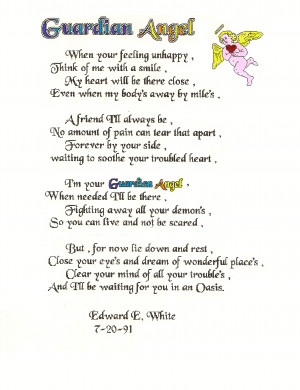 Guardian Angel
When your feeling unhappy ,
Think of me with a smile ,
My heart will be there close ,
Even when my body's away by mile's .
A friend I'll always be ,
No amount of pain can tear that apart ,
Forever by your side ,
waiting to soothe your troubled heart .
I'm your Guardian Angel ,
When needed I'll be there ,
Fighting away all your demon's ,
So you can live and not be scared .
But , for now lie down and rest ,
Close your eye's and dream of wonderful place's ,
Clear your mind of all your trouble's ,
And I'll be waiting for you in an Oasis.
Edward E. White
7-20-91